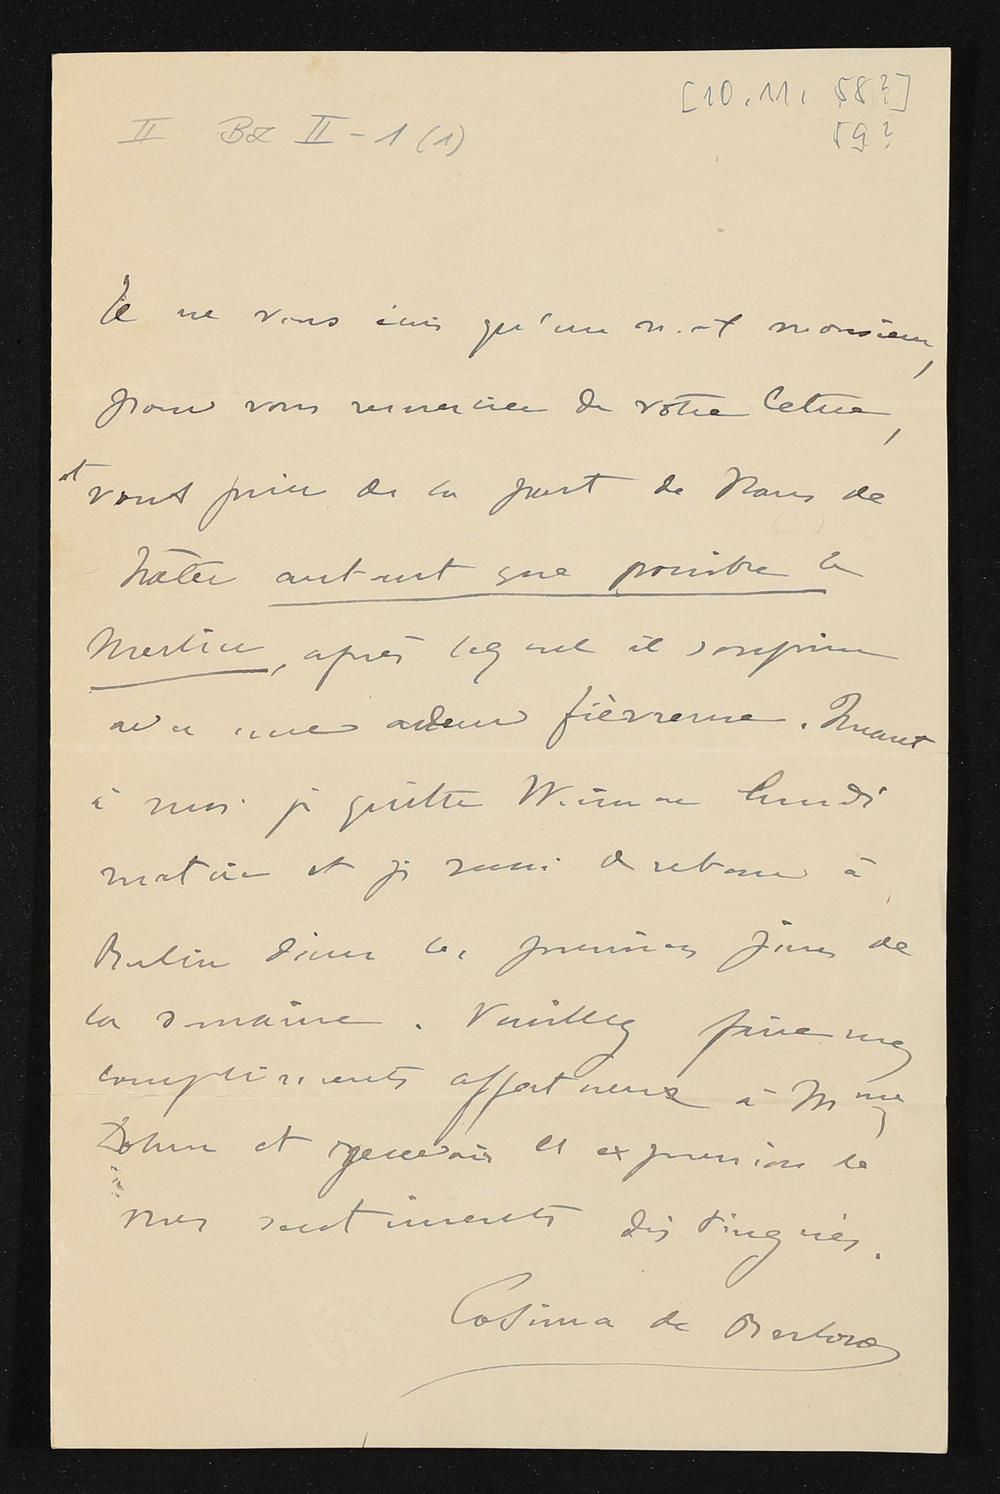 [10.11. 58?]
59?
II BZ II - 1 (1)
Je ne vous écris qu'un mot monsieur,
pour vous remercier de votre lettre,
et vous prier de la part de Hans de
hâter autant que possible le
Mestica, après lequel il soupire
avec une ardeur fiévreuse. Quant
à moi je quitte Weimar lundi
matin et je serai de retour à
Berlin dans les premiers jours de
la semaine. Veuillez faire mes
compliments affectueux à Mme
Dohm et recevoir l'expression de
mes sentiments distingués.
Cosima de